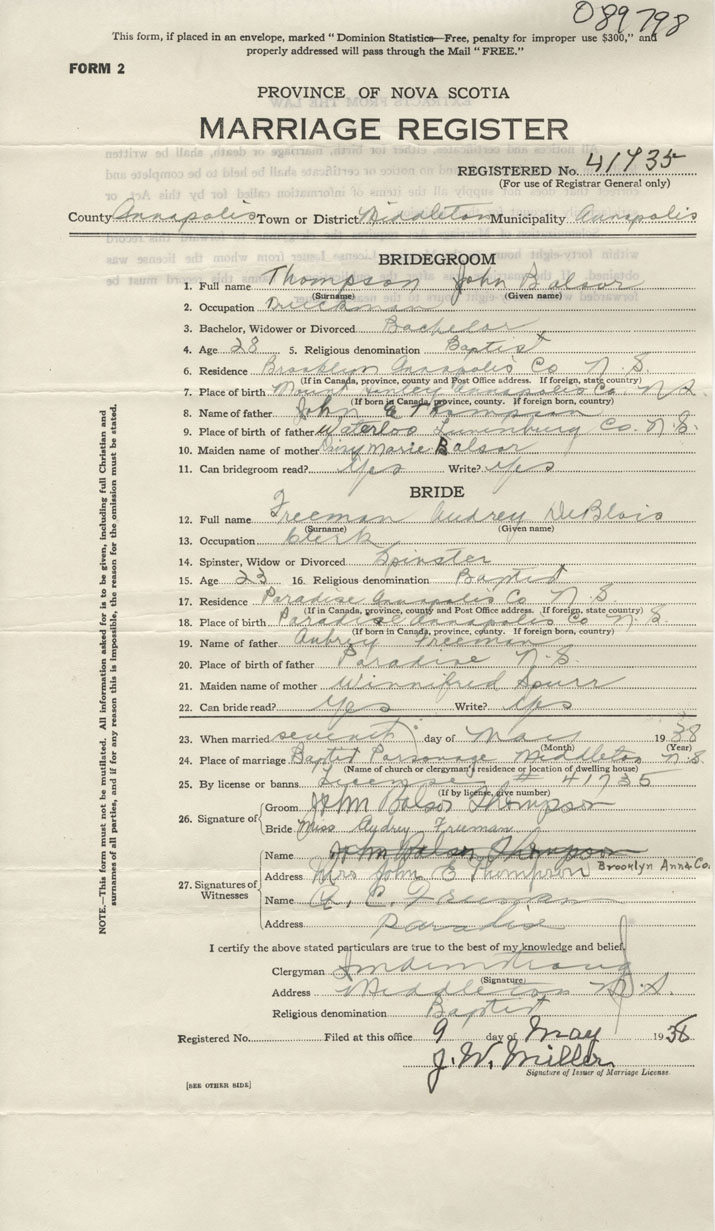 089798
This form, if placed in an envelope, marked "Dominion Statistics—Free, penalty for improper use $300," and
properly addressed will pass through the Mail "FREE."
FORM 2
PROVINCE OF NOVA SCOTIA
MARRIAGE REGISTER
REGISTERED No. 41735
(For use of Registrar General only)
County Annapolis Town or District Middleton Municipality Annapolis
BRIDEGROOM
1. Full name Thompson John Balsor
(Surname) (Given name)
2. Occupation Truckman
3. Bachelor, Widower or Divorced Bachelor
4. Age 28 5. Religious denomination Baptist
6. Residence Brooklyn Annapolis Co N.S.
(If in Canada, province, county and Post Office address. If foreign, state country)
7. Place of birth Mount Hanley Annapolis Co. N.S.
(If born in Canada, province, county. If foreign born, country)
8. Name of father John E Thompson
9. Place of birth of father Waterloo Lunenburg Co. N.S.
10. Maiden name of mother Marie Balsor
11. Can bridegroom read? Yes Write? Yes
BRIDE
12. Full name Freeman Audrey DeBlois
(Surname) (Given name)
13. Occupation Clerk
14. Spinster, Widow or Divorced Spinster
15. Age 23 16. Religious denomination Baptist
17. Residence Paradise Annapolis Co N.S.
(If in Canada, province, county and Post Office address. If foreign, state country)
18. Place of birth Paradise Annapolis Co N.S.
(If born in Canada, province, county. If foreign born, country)
19. Name of father Aubrey Freeman
20. Place of birth of father Paradise N.S.
21. Maiden name of mother Winnifred Spurr
22. Can bride read? Yes Write? Yes
23. When married seventh day of May 1938
(Month) (Year)
24. Place of marriage Baptist Parsonage Middleton N.S.
(Name of church or clergyman's residence or location of dwelling house)
25. By license or banns License # 41735
(If by license, give number)
26. Signature of
Groom John Balsor Thompson
Bride Miss Audrey Freeman
27. Signatures of Witnesses
Name John Balsor Thompson
Address Mrs John E Thompson Brooklyn Anna Co.
Name C. Freeman
Address Paradise
I certify the above stated particulars are true to the best of my knowledge and belief.
Clergyman
(Signature)
Address Middleton N.S.
Religious denomination Baptist
Registered No. Filed at this office 9 day of May 1938
J. W. Miller
Signature of Issuer of Marriage License
[SEE OTHER SIDE]
NOTE.—This form must not be mutilated. All information asked for is to be given, including full Christian and
surnames of all parties, and if for any reason this is impossible, the reason for the omission must be stated.